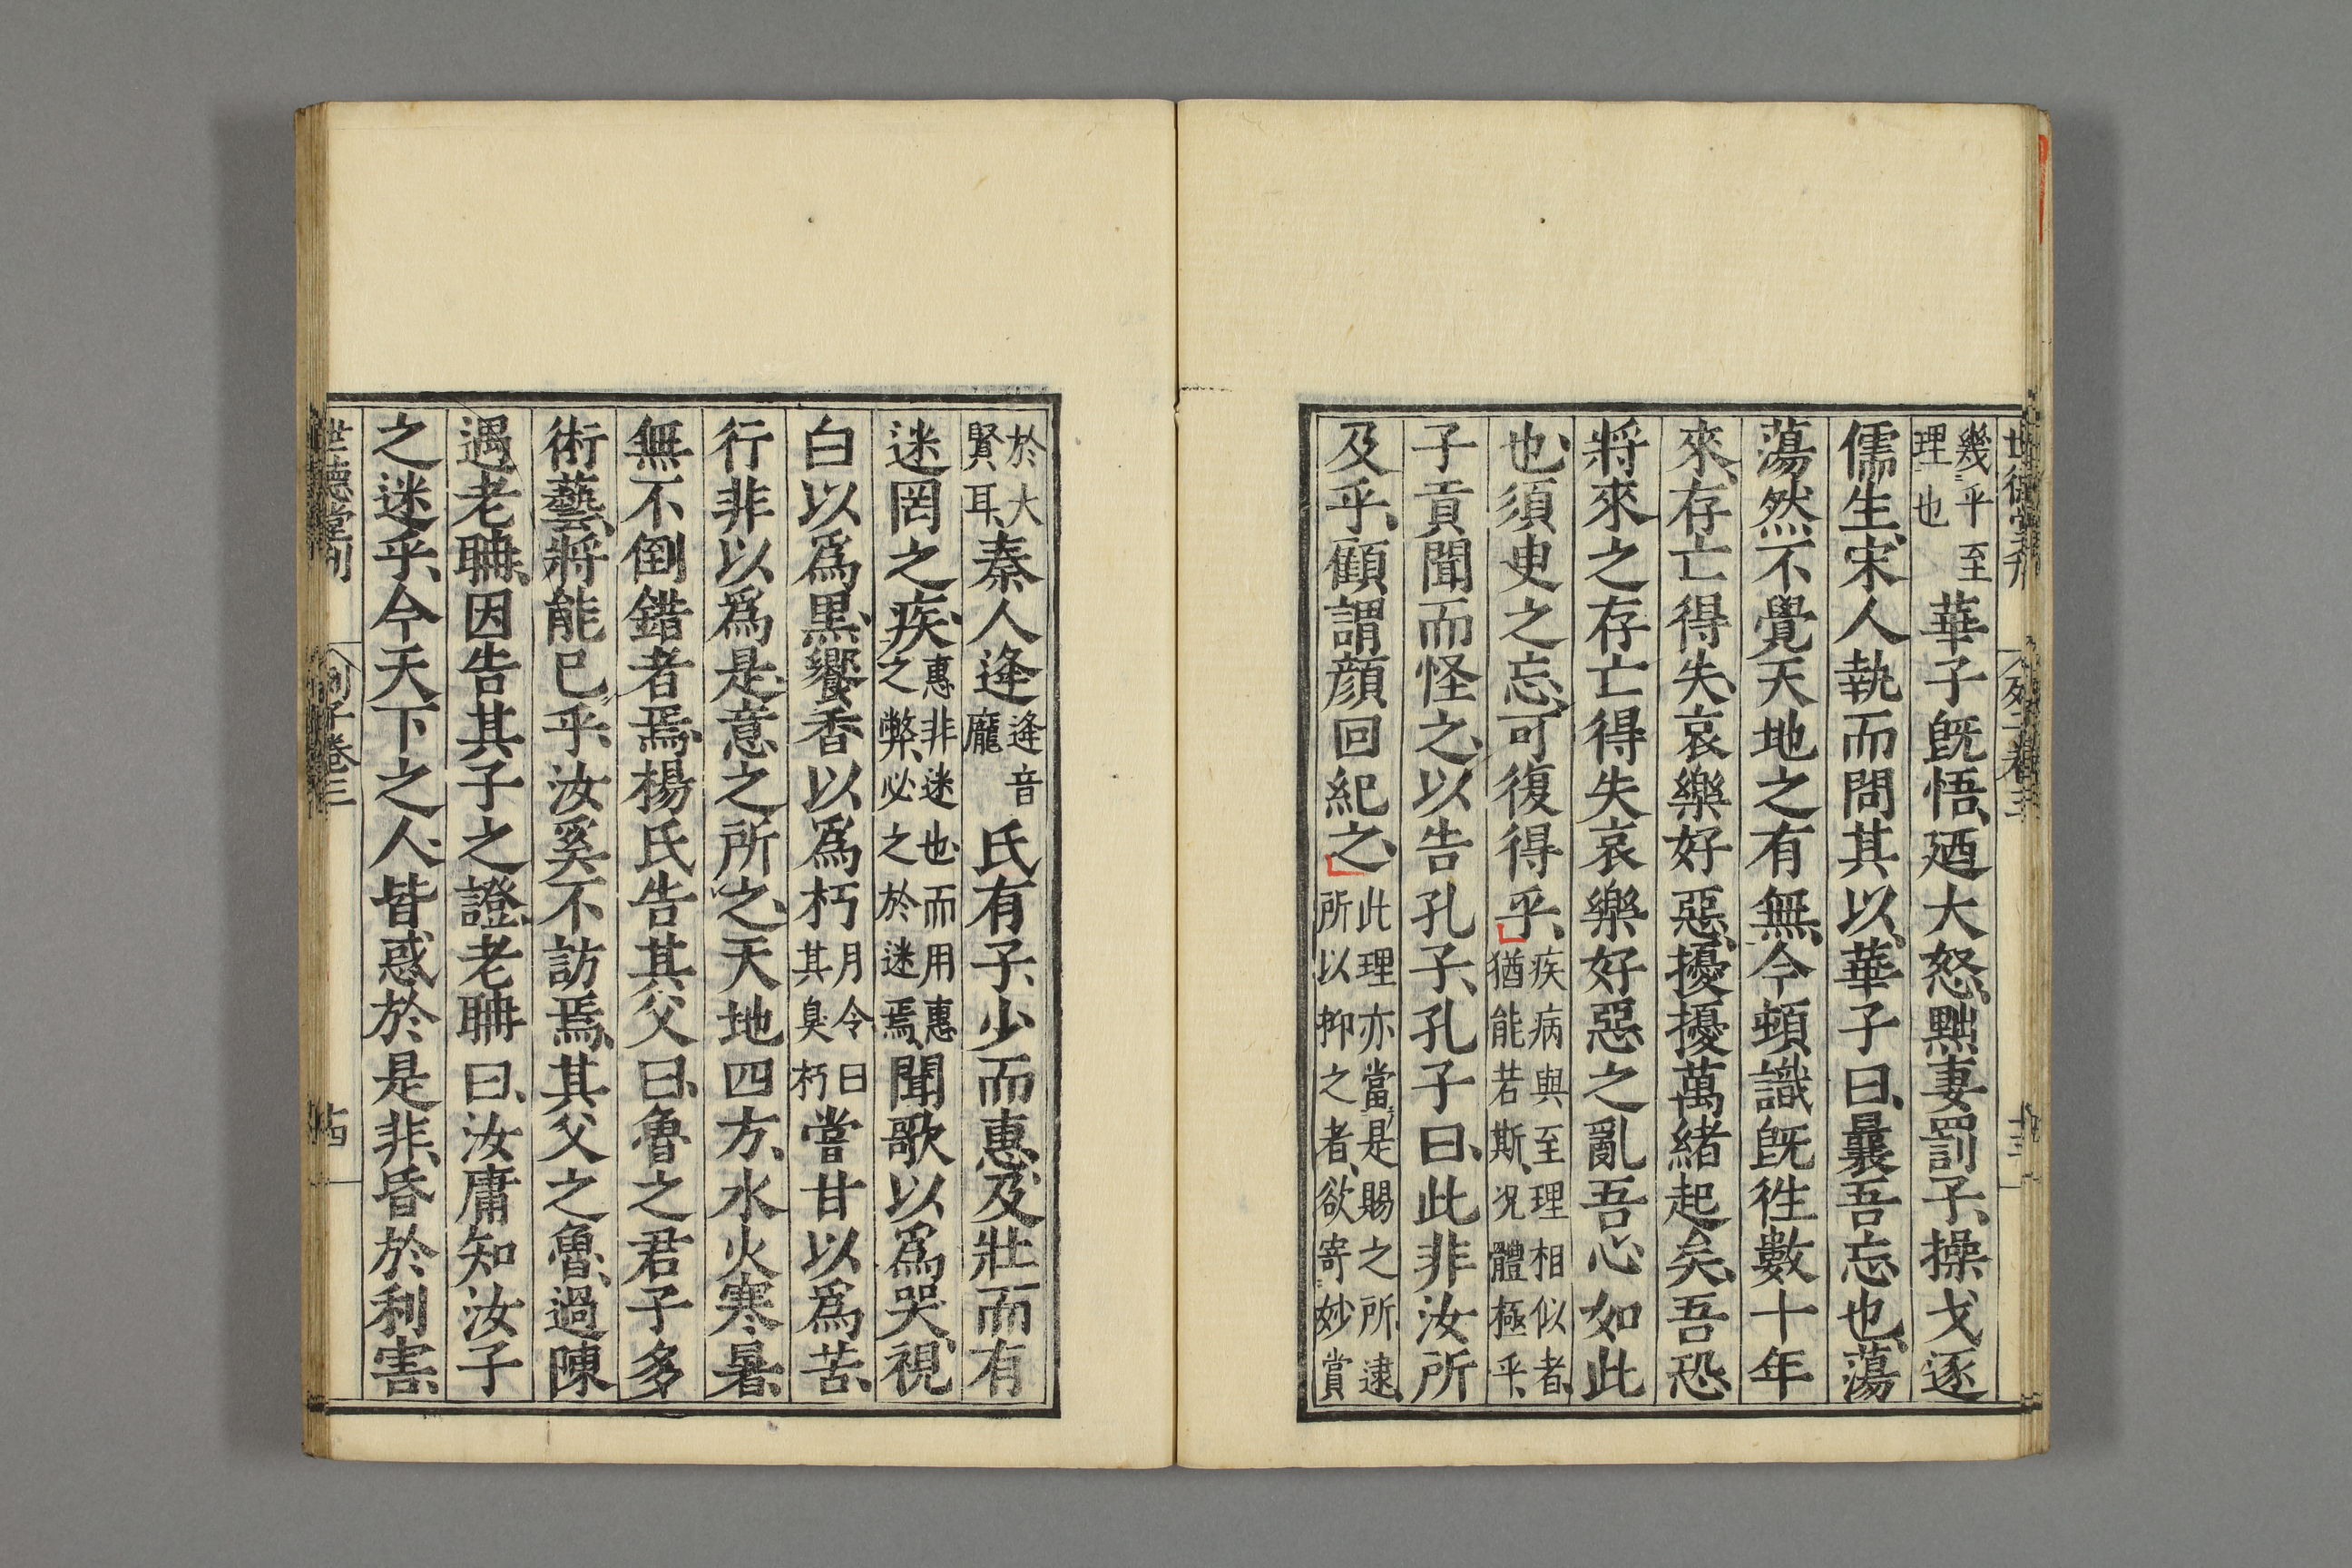 幾乎至理也華子旣悟、廼大怒、黜妻罰子、操戈逐
儒生、宋人執而問其以、華子曰、曩吾忘也、蕩
蕩然不覺天地之有無、今頓識旣徃數十年
來、存亡得失、哀樂好惡、擾擾萬緒起矣、吾恐
將來之存亡得失哀樂好惡之亂吾心如此
也、須臾之忘、可復得乎、疾病與至理相似者、猶能若斯、况體極乎、
子貢聞而怪之、以告孔子、孔子曰、此非汝所
及乎、顧謂顏回紀之、此理亦當是賜之所逮、所以抑之者、欲寄妙賞
於大賢耳、秦人逄逄音龐氏有子、少而惠、及壯而有
迷罔之疾、惠非迷也、而用惠之弊、必之於迷焉、聞歌以爲哭、視
白以爲黒、饗香以爲朽月令曰其臭朽嘗甘以爲苦、
行非以爲是、意之所之、天地四方、水火寒暑、
無不倒錯者焉、楊氏告其父曰、魯之君子多
術藝、將能已乎、汝奚不訪焉、其父之魯、過陳
遇老聃、因告其子之證、老聃曰、汝庸知汝子
之迷乎、今天下之人、皆惑於是非、昏於利害、
世德堂刊 列子卷三 十四